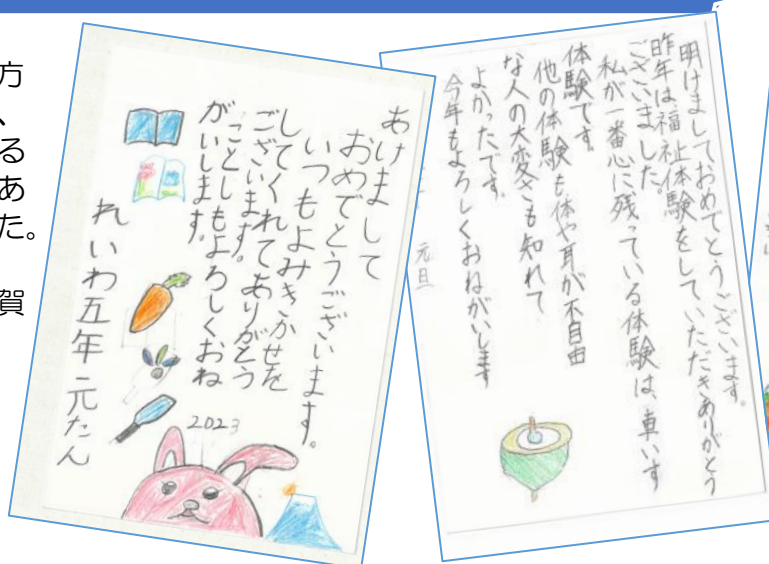 方
、
る
あ
た。
賀
あけまして
おめでとうございます。
いつもよみきかせを
してくれてありがとう
ございます。
ことしもよろしくおね
がいします。
れいわ五年元たん
2023
明けましておめでとうございます。
昨年は福祉体験をしていただきありがとう
ございました。
私が一番心に残っている体験は、車いす
体験です。
他の体験も体や耳が不自由
な人の大変さも知れて
よかったです。
今年もよろしくおねがいします
元旦